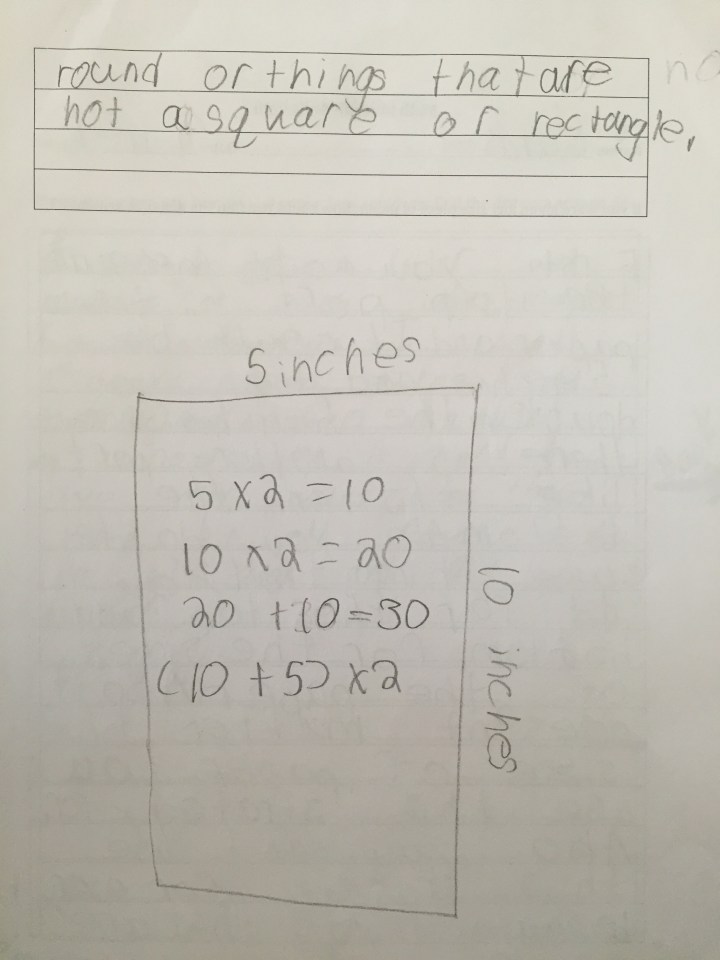 round or things that are
not a square or rectangle,
5 inches
5 x 2 = 10
10 x 2 = 20
20 + 10 = 30
(10 + 5) x 2
10 inches